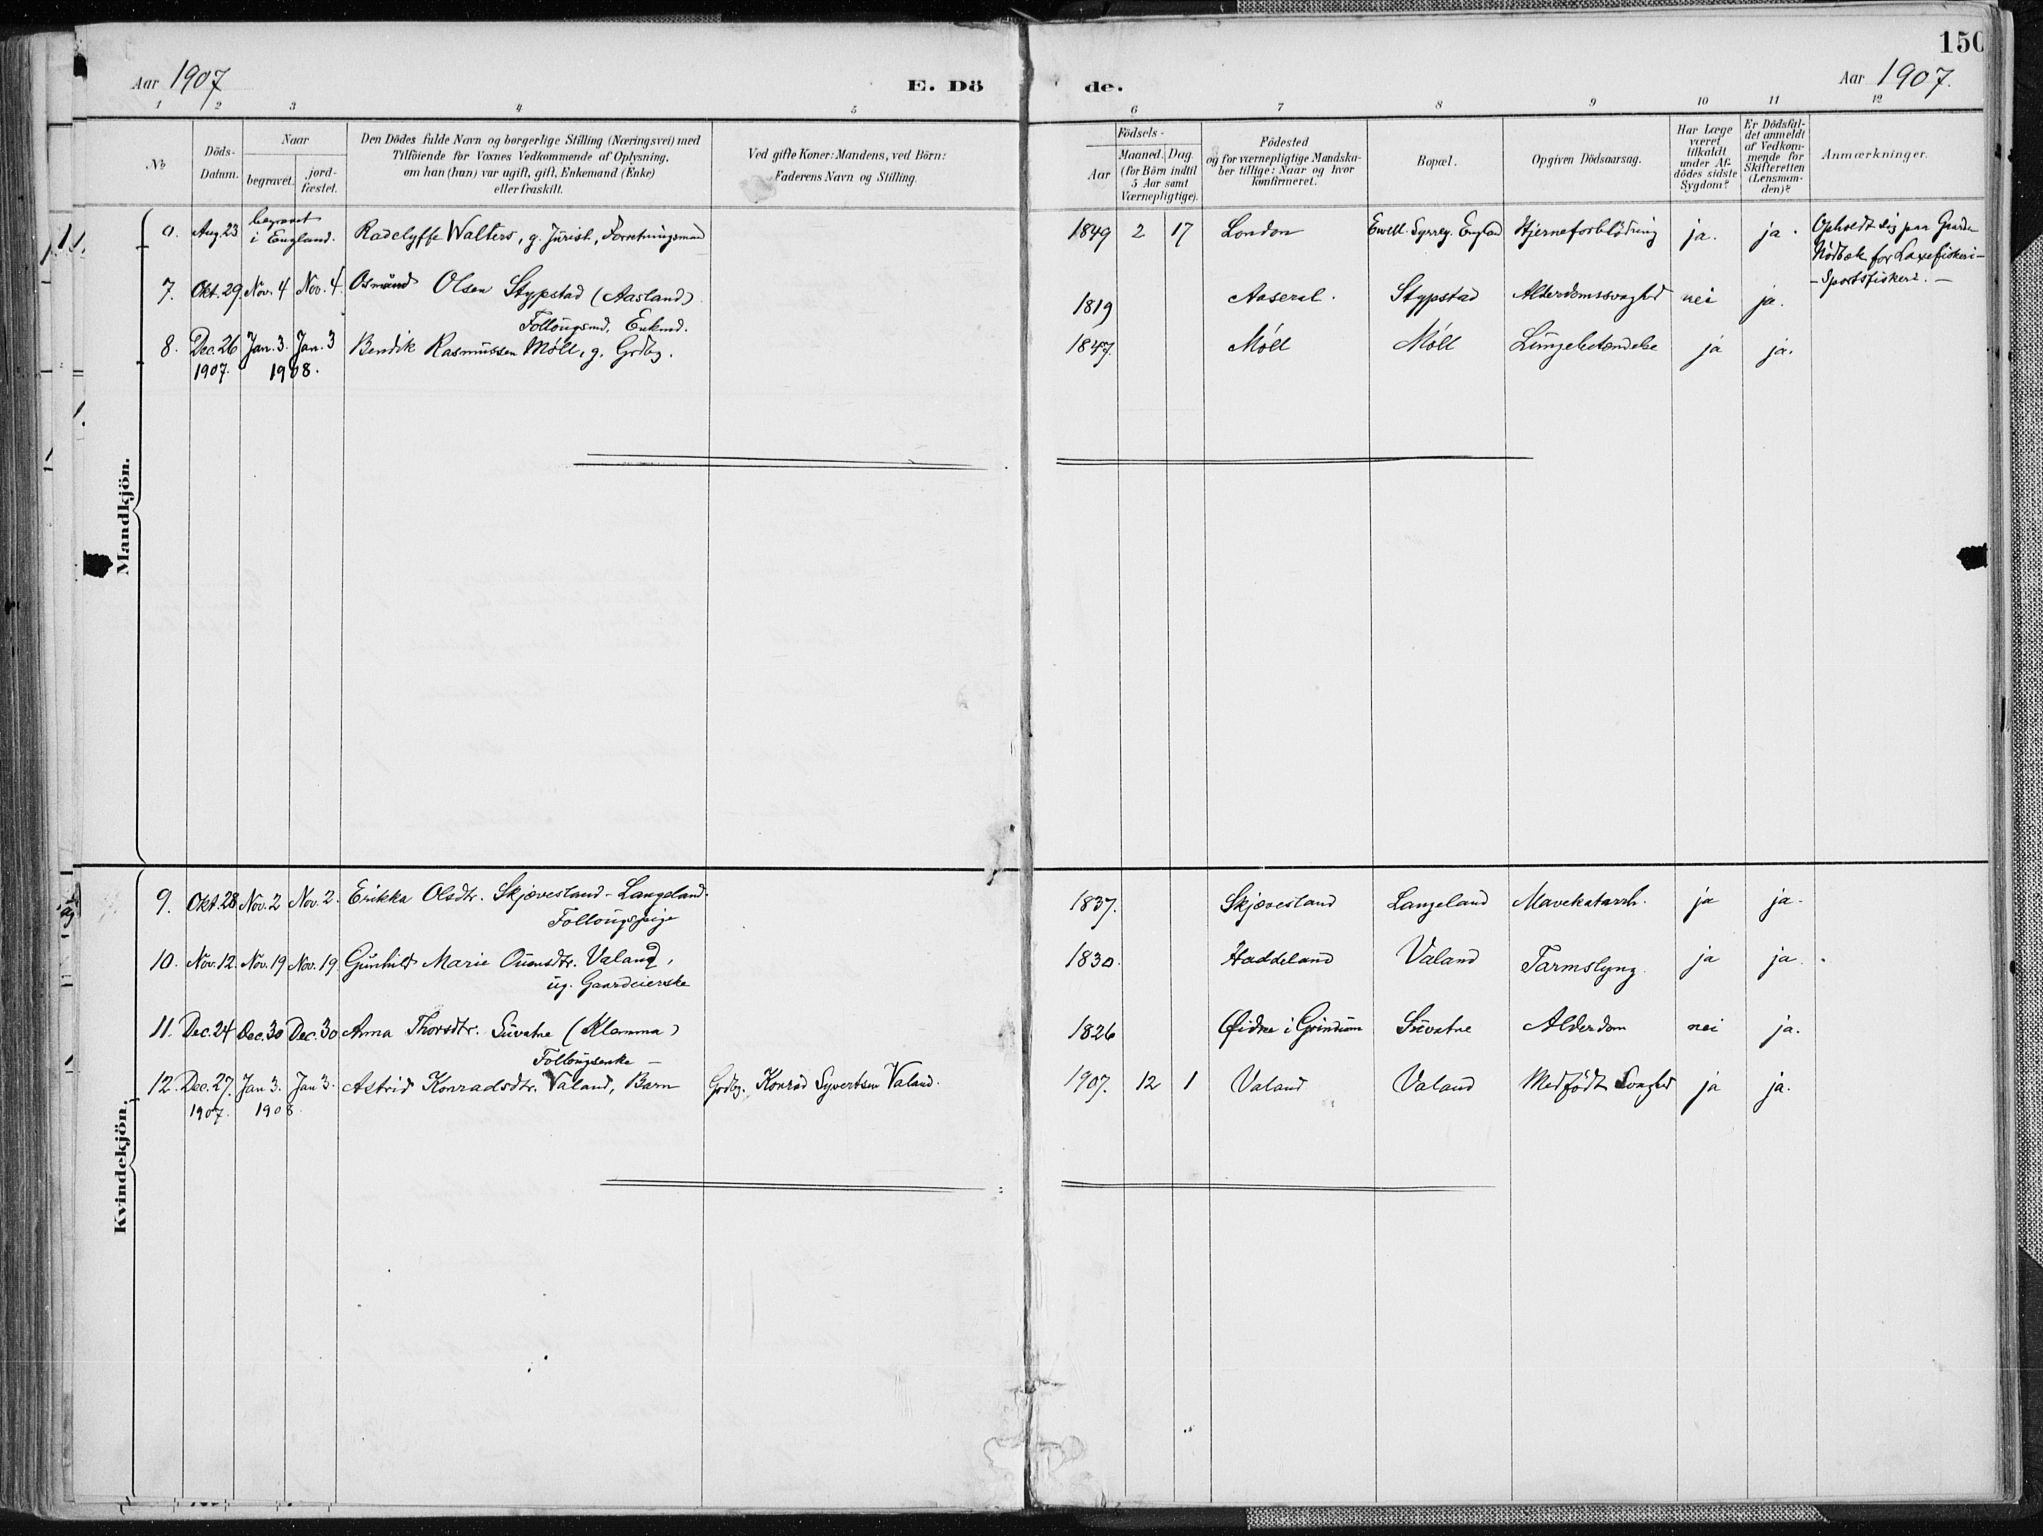 150
Aar 1907
E. Dö
de.
Aar 1907.
1 2 3 4 5 6 7 8 9 10 11 12
No
Döds-
Datum.
Naar
begravet.
jord-
fæstet.
Den Dödes fulde Navn og borgerlige Stilling (Næringsvei) med
Tilföiende for Voxnes Vedkommende af Oplysning,
om han (hun) var ugift, gift, Enkemand (Enke)
eller fraskilt.
Ved gifte Koner: Mandens, ved Börn:
Faderens Navn og Stilling.
Födsels-
Aar
Maaned. Dag.
(for Börn indtil
5 Aar samt
Værnepligtige).
Födested
og for værnepligtige Mandska-
ber tillige: Naar og hvor
konfirmeret.
Bopæl.
Opgiven Dödsaarsag.
Har Læge
været
tilkaldt
under Af-
dödes sidste
Sygdom?
Er Dödsfal-
det anmeldt
af Vedkom-
mende for
Skifteretten
(Lensman-
den)?
Anmærkninger.
Mandkjön.
Aug. 23 begravet i England. Radclyffe Walters, g. Jurist, Forretningsmand 1849 2 17 London Ewell. Syrrey. England Hjerneforblödning ja. ja. Opholdt sig paa Gaarden
Nödbæk for Laxefiskeri-
- Sportsfiskeri. -
7. Okt. 29 Nov. 4 Nov. 4. Osmund Olsen Stypstad (Aasland) 1819 Aaseral. Stypstad Alderdomssvaghed nei ja.
Follougsmd. Enkmd.
8. Dec. 26 Jan. 3. Jan. 3 Bendik Rasmussen Möll, g. Grdbg. 1847. Møll Møll Lungebetændelse ja ja.
1907. 1908.
Kvindekjön.
9. Okt. 28 Nov. 2 Nov. 2. Erikka Olsdtr. Skjævesland-Langeland. 1837. Skjævesland Langeland Mavekatarrh. ja ja.
Follougspige
10. Nov. 12. Nov. 19 Nov. 19. Gunhild Marie Ouensdtr. Valand, 1830. Haddeland Valand Tarmslyng. ja ja.
ug. Gaardeierske
11. Dec. 24 Dec. 30 Dec. 30 Anna Thorsdtr. Suvatne (Klemma) 1826 Øidne i Grindum Suvatne Alderdom nei ja.
Follougsenke -
12. Dec. 27. Jan 3. Jan 3. Astrid Konradsdtr. Valand, Barn Grdbg. Konrad Syvertsen Valand. 1907. 12 1 Valand Valand Medfödt Svaghed ja ja.
1907. 1908.